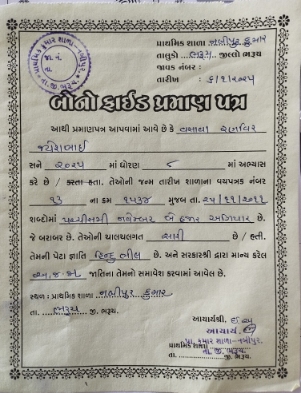 પ્રાથમિક શાળા નબીપુર કુમાર
તાલુકો ભરૂચ જીલ્લો ભરૂચ
જાવક નંબર :
તારીખ : ૬/૧/૨૦૨૫
બોનો ફાઇડ પ્રમાણ પત્ર
આથી પ્રમાણપત્ર આપવામાં આવે છે કે વસાવા
જયેશભાઈ
સને ૨૦૨૫ માં ધોરણ ૮ માં અભ્યાસ
કરે છે / કરતા હતા. તેઓની જન્મ તારીખ શાળાના વયપત્રક નંબર
૧૩ ના ક્રમ ૧૫૩૪ મુજબ તા. ૨૫/૧૧/૨૦૧૧
શબ્દોમાં પચ્ચીસમી નવેમ્બર બે હજાર અગિયાર છે.
જે બરાબર છે. તેઓની ચાલચલગત સારી છે / હતી.
તેમની પેટા જ્ઞાતિ હિન્દુ ભીલ છે. અને સરકારશ્રી દ્વારા માન્ય કરેલ
અ.જ.જા જાતિના તેમનો સમાવેશ કરવામાં આવેલ છે.
સ્થળ : પ્રાથમિક શાળા નબીપુર કુમાર
તા. ભરૂચ જી. ભરૂચ.
આચાર્યશ્રી
આચાર્ય
પ્રા. કુમાર શાળા-નબીપુર.
પ્રાથમિક શાળા
તા.જી. ભરૂચ
તા. જી. ભરૂચ.